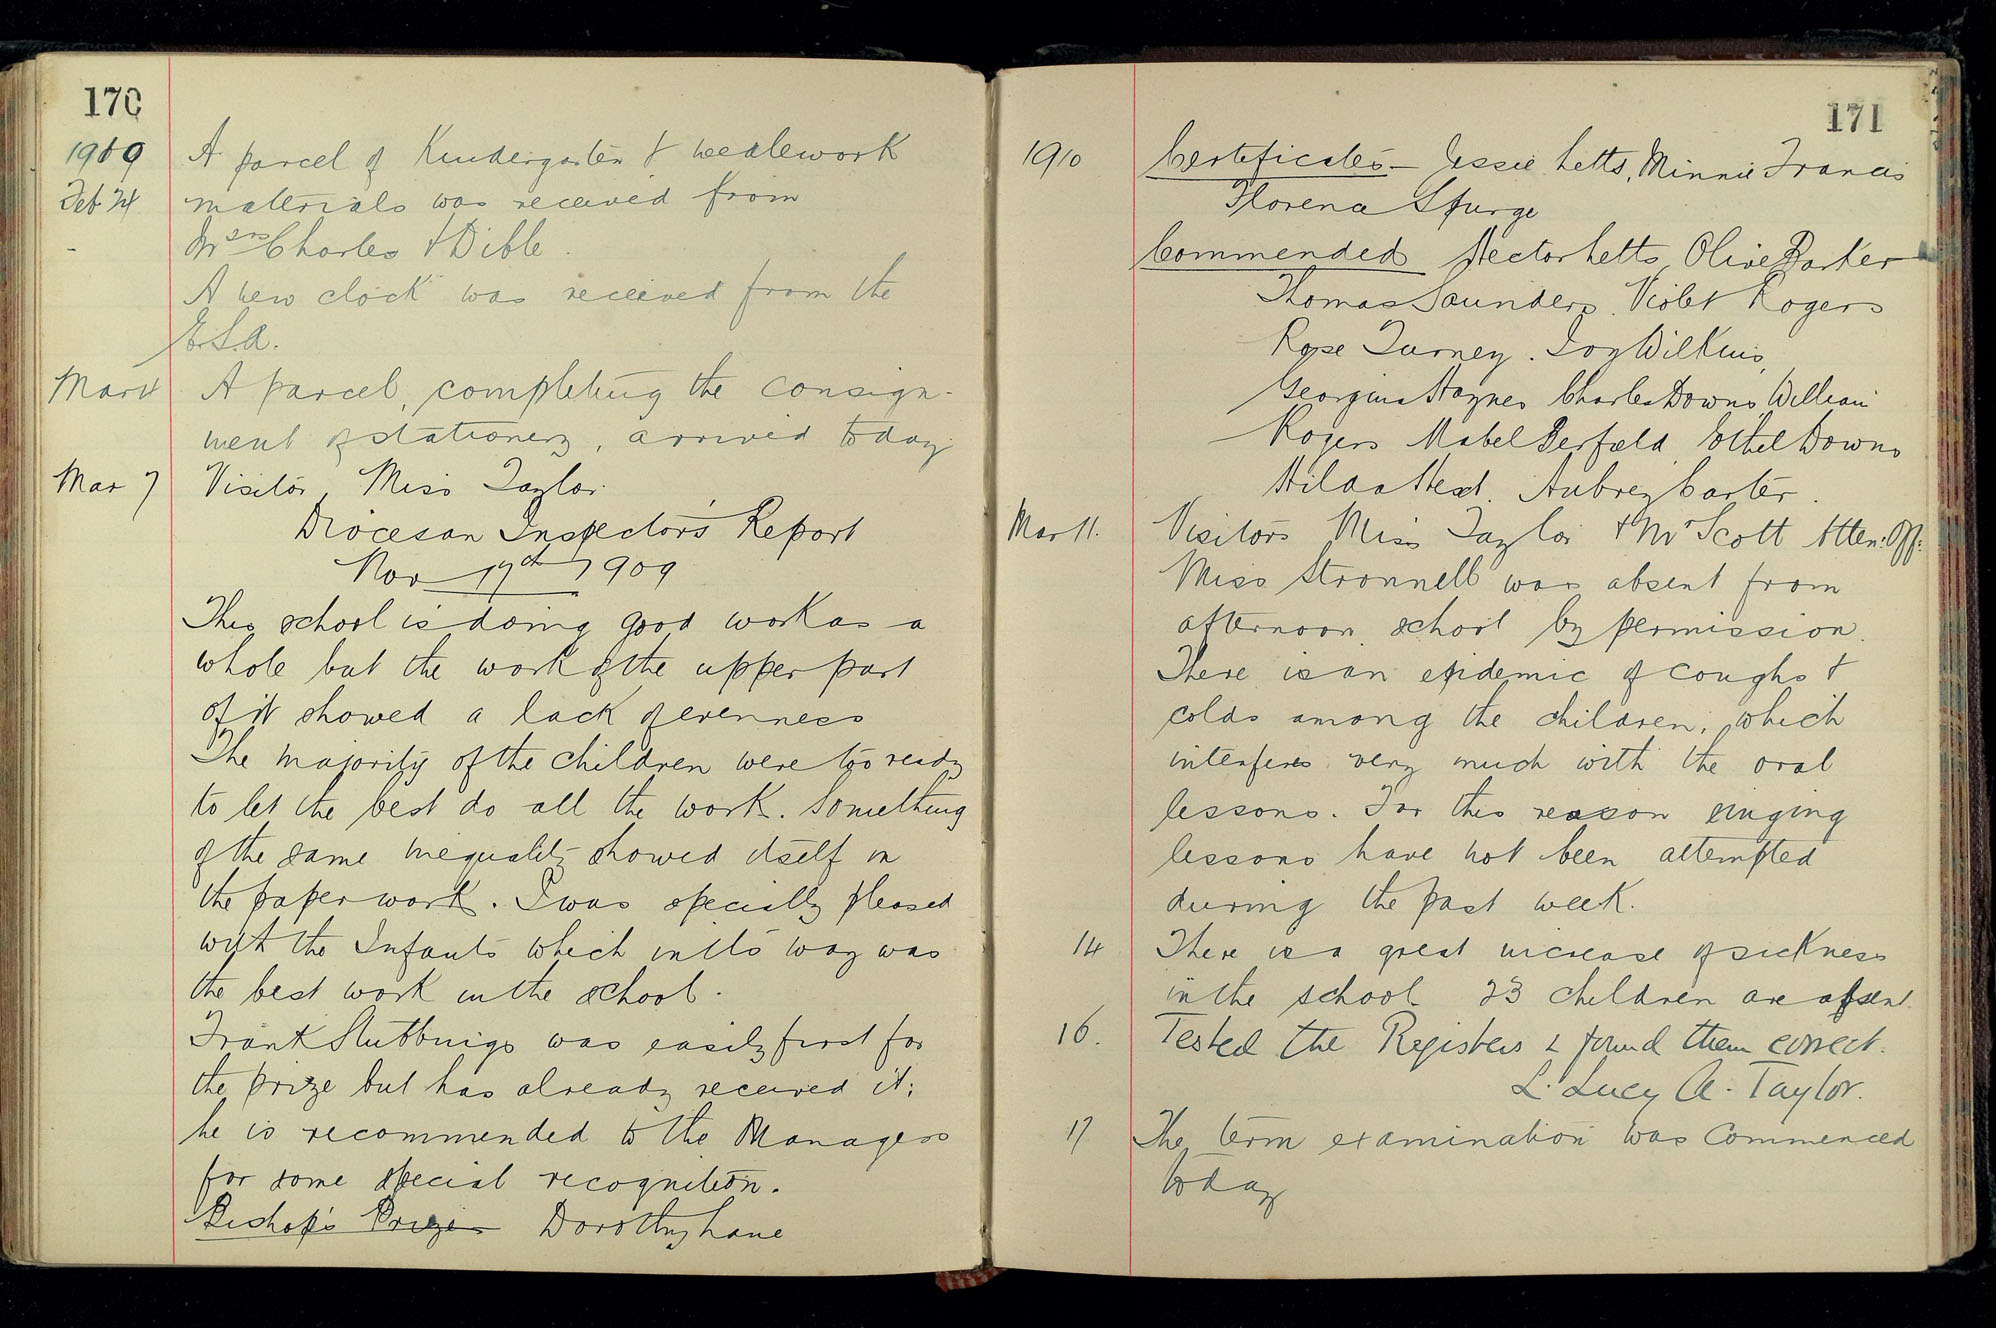 170
1909 A parcel of Kindergarten & needlework
Feb 24 materials was received from
Mssrs Charles & Dible.
A new clock was received from the
E.S.A.
Mar 4 A parcel, completing the consign-
ment of stationery, arrived today
Mar 7 Visitor, Miss Taylor.
Diocesan Inspector's Report
Nov 17th 1909
This school is doing good work as a
whole but the work of the upper part
of it showed a lack of evenness
The majority of the children were too ready
to let the best do all the work. Something
of the same inequality showed itself in
the paper work. I was specially pleased
with the Infants which in its way was
the best work in the school.
Frank Stubbings was easily first for
the prize but has already received it;
he is recommended to the Managers
for some special recognition.
Bishop's Prize Dorothy Lane
171
1910 Certificates - Jessie Letts, Minnie Francis
Florence Spurge
Commended Hector Letts, Olive Barker
Thomas Saunders. Violet Rogers
Rose Turney. Ivy Wilkins,
Georgina Haynes Charles Downs, William
Rogers Mabel Serfield Ethel Downs
Hilda Head. Aubrey Carter.
Mar 11. Visitors Miss Taylor & Mr Scott Atten: Off:
Miss Stronnell was absent from
afternoon school by permission.
There is an epidemic of coughs &
colds among the children, which
interferes very much with the oral
lessons. For this reason singing
lessons have not been attempted
during the past week.
14 There is a great increase of sickness
in the school 23 children are absent.
16. Tested the Registers & found them correct.
L. Lucy A. Taylor.
17 The term examination was commenced
today